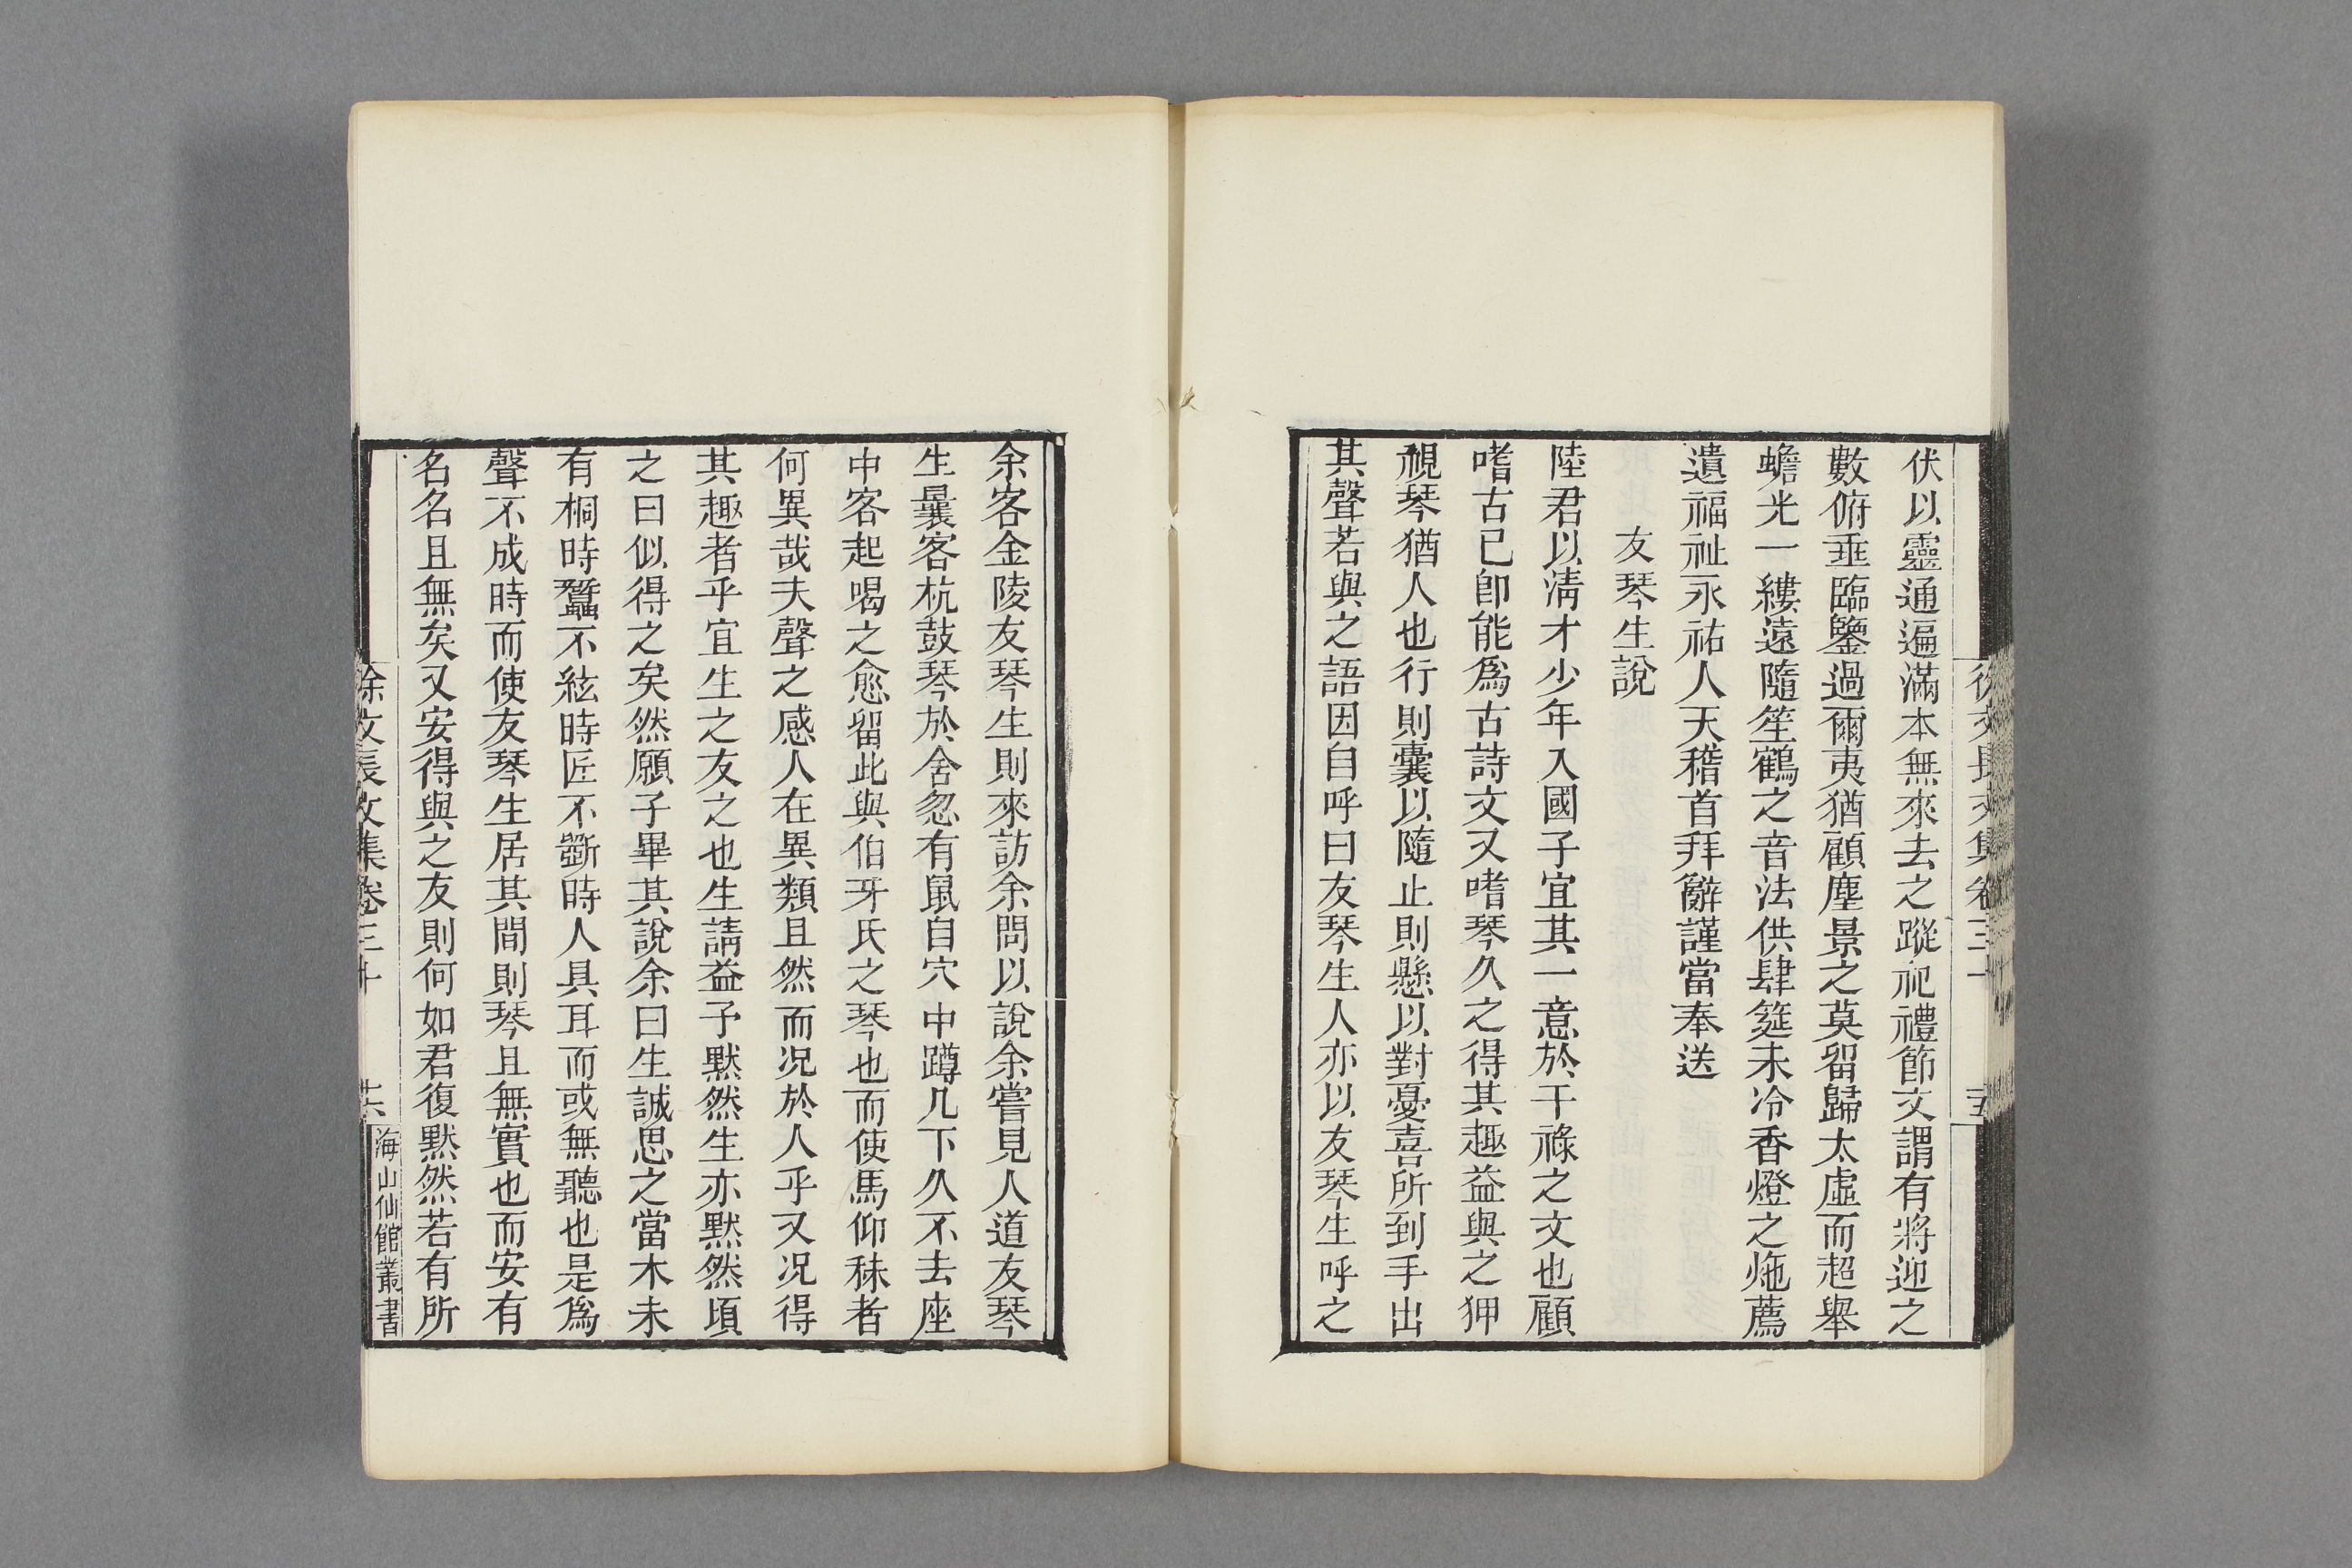 伏以靈通遍滿本無來去之蹤祀禮節文謂有將迎之
數俯垂臨鑒過爾夷猶顧塵景之莫留歸太虛而超舉
蟾光一縷遠隨笙鶴之音法供肆筵未冷香燈之灺薦
遺福祉永祐人天稽首拜辭謹當奉送
友琴生說
陸君以淸才少年入國子宜其一意於干祿之文也顧
嗜古已卽能爲古詩文又嗜琴久之得其趣益與之狎
視琴猶人也行則囊以隨止則懸以對憂喜所到手出
其聲若與之語因自呼曰友琴生人亦以友琴生呼之
余客金陵友琴生則來訪余問以說余嘗見人道友琴
生曩客杭鼓琴於舍忽有鼠自穴中蹲几下久不去座
中客起喝之愈留此與伯牙氏之琴也而使馬仰秣者
何異哉夫聲之感人在異類且然而况於人乎又况得
其趣者乎宜生之友之也生請益予默然生亦默然頃
之曰似得之矣然願子畢其說余曰生誠思之當木未
有桐時蠶不絃時匠不斵時人具耳而或無聽也是爲
聲不成時而使友琴生居其間則琴且無實也而安有
名名且無矣又安得與之友則何如君復默然若有所
徐文長文集卷三十
海山仙館叢書